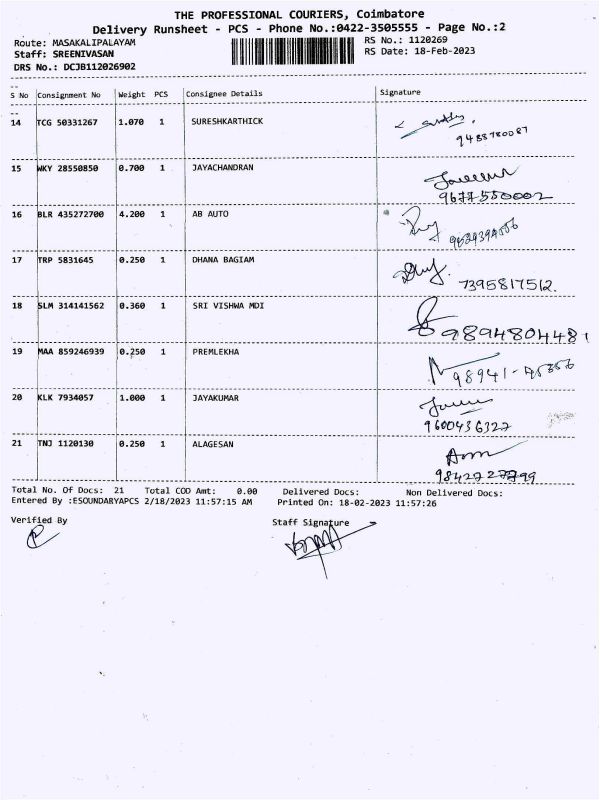 THE PROFESSIONAL COURIERS, Coimbatore
Delivery Runsheet - PCS - Phone No.:0422-3505555 - Page No.:2
Route: MASAKALIPALAYAM RS No.: 1120269
Staff: SREENIVASAN RS Date: 18-Feb-2023
DRS No.: DCJB112026902
S No Consignment No Weight PCS Consignee Details Signature
14 TCG 50331267 1.070 1 SURESHKARTHICK
9488780087
15 WKY 28550850 0.700 1 JAYACHANDRAN
9677550002
16 BLR 435272700 4.200 1 AB AUTO
17 TRP 5831645 0.250 1 DHANA BAGIAM
7395817512.
18 SLM 314141562 0.360 1 SRI VISHWA MDI
9894804481
19 MAA 859246939 0.250 1 PREMLEKHA
20 KLK 7934057 1.000 1 JAYAKUMAR
9600436327
21 TNJ 1120130 0.250 1 ALAGESAN
9842727799
Total No. Of Docs: 21 Total COD Amt: 0.00 Delivered Docs: Non Delivered Docs:
Entered By :ESOUNDARYAPCS 2/18/2023 11:57:15 AM Printed On: 18-02-2023 11:57:26
Verified By Staff Signature